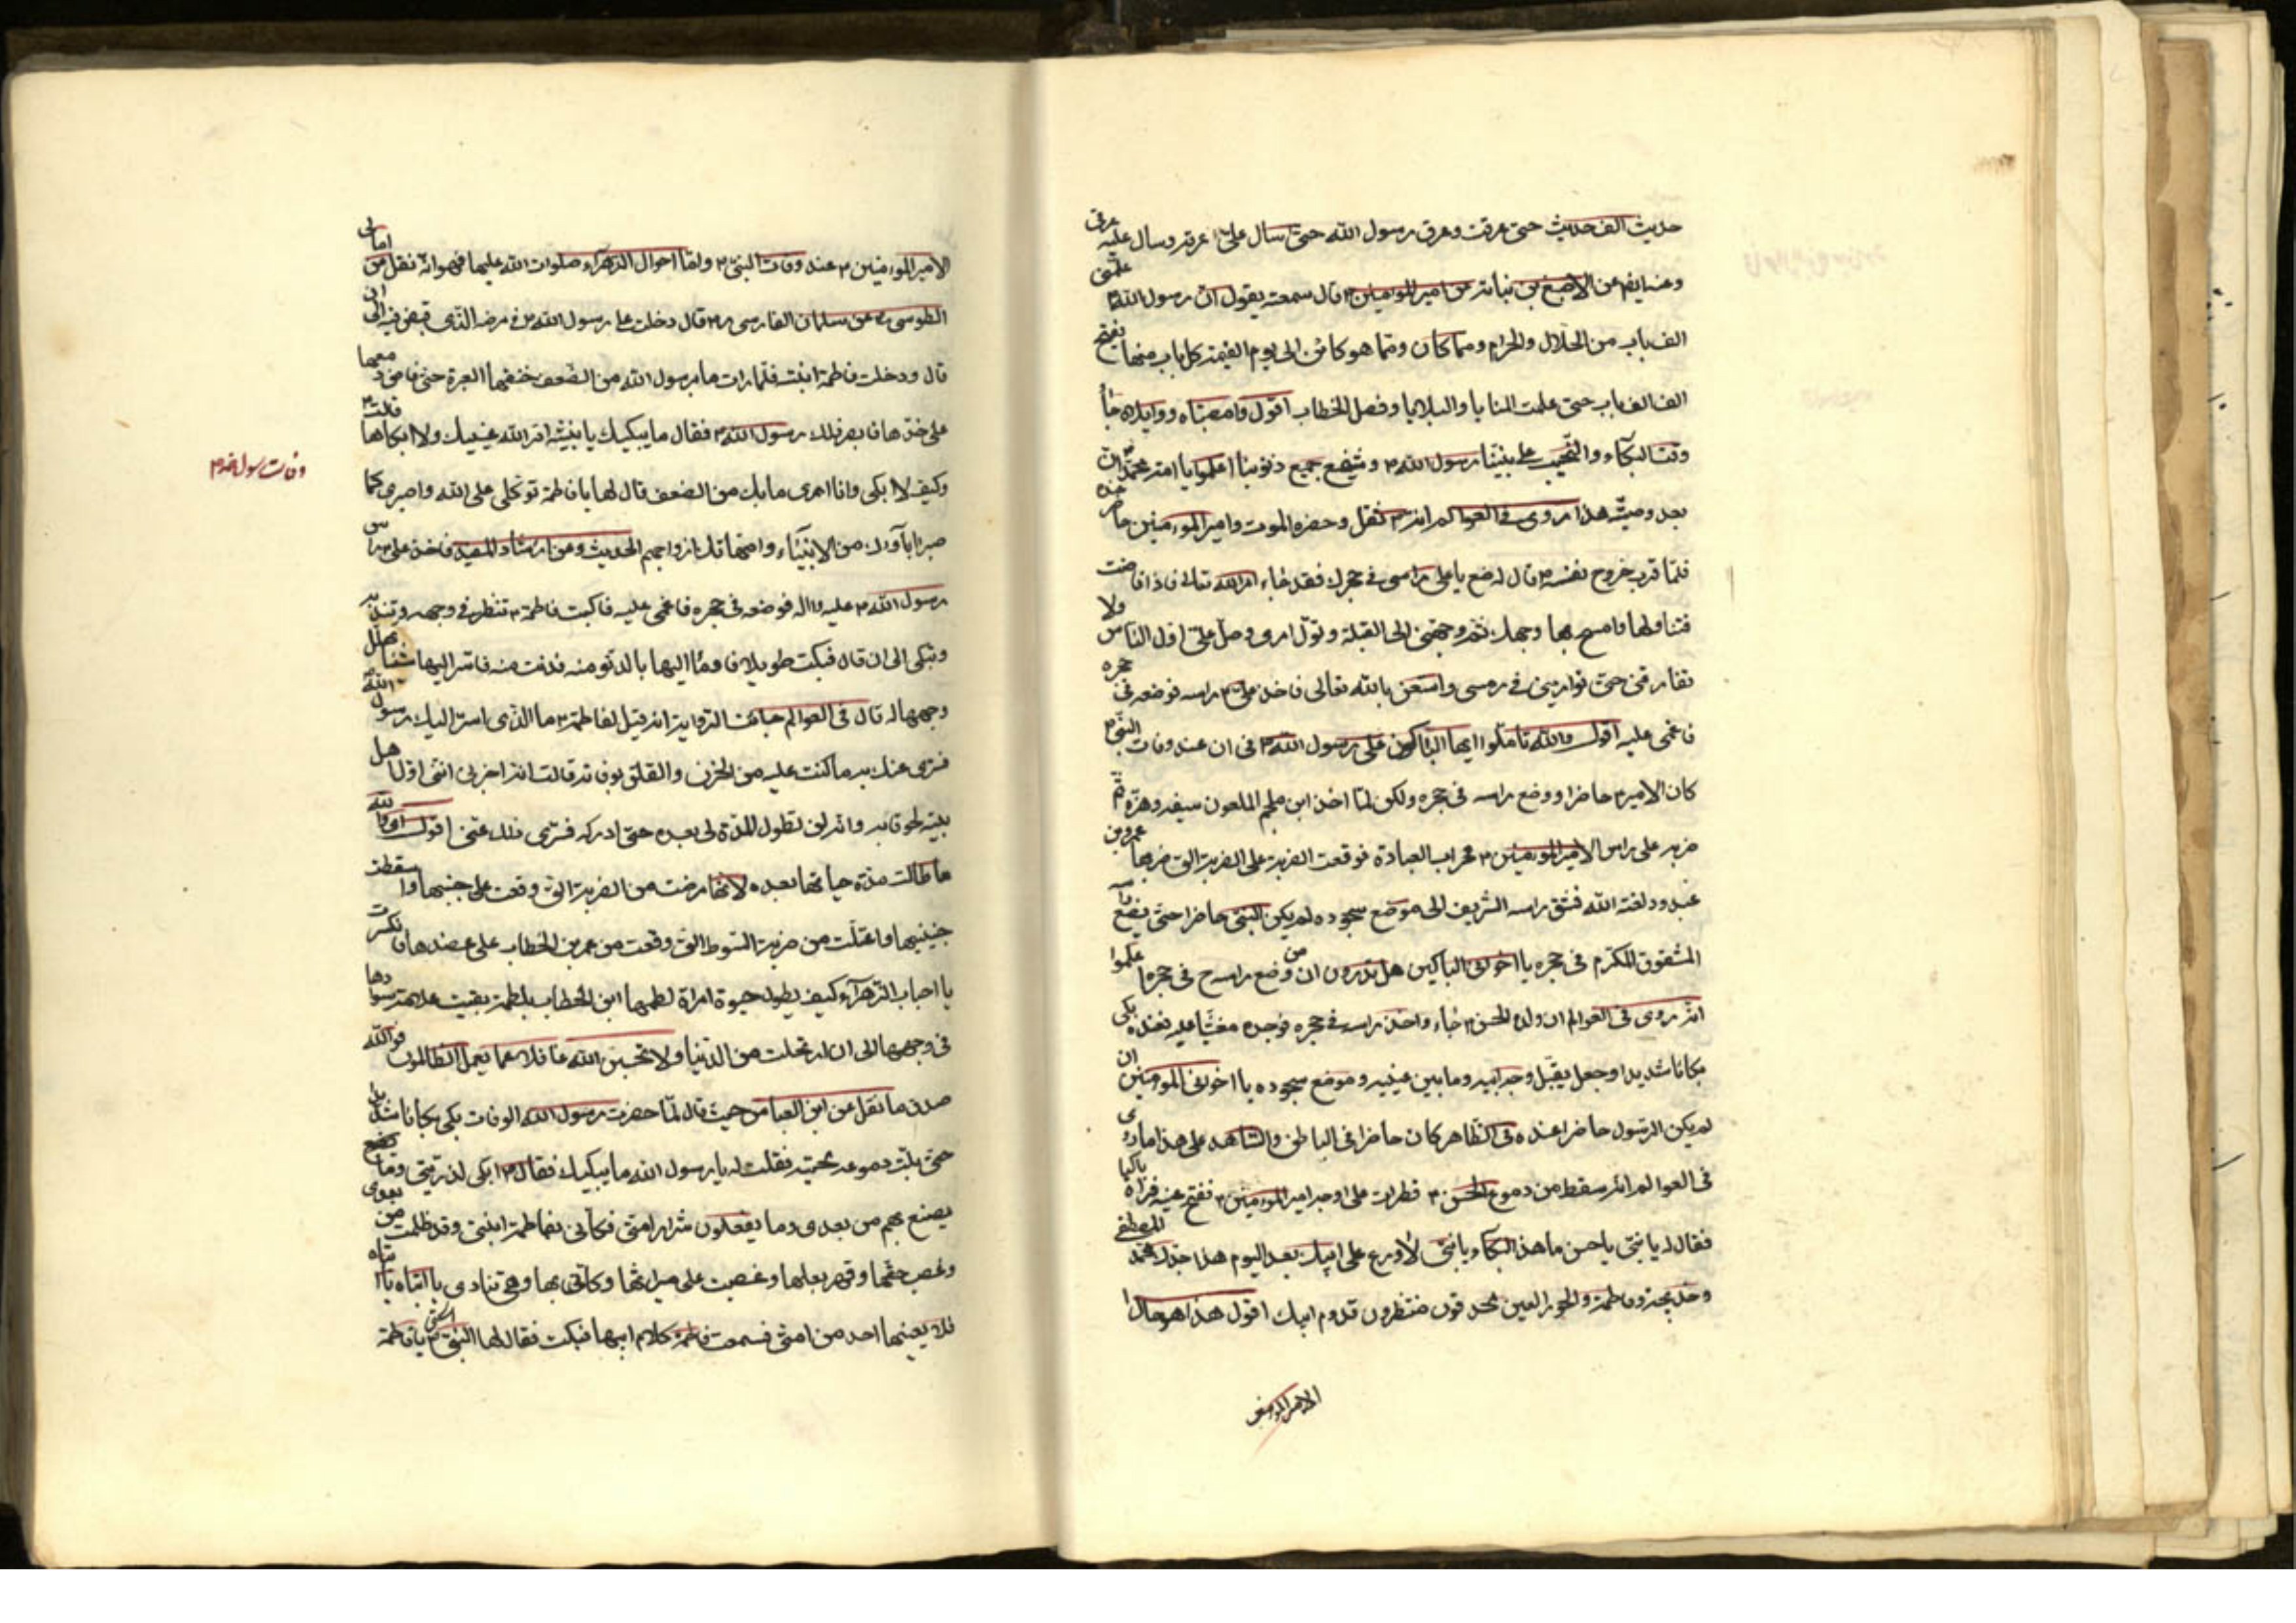 حديث الف حديث حتى عرقت وعرق رسول الله حتى سال على عرقه وسال عليه عرقى
وعنه ايضا عن الاصبغ بن نباته عن امير المومنين ؑ قال سمعته يقول ان رسول الله ؐ علمنى
الف باب من الحلال والحرام ومما كان ومما هو كائن الى يوم القيمة كل باب منها يفتح
الف الف باب حتى علمت المنايا والبلايا وفصل الخطاب اقول وامصيبتاه وواويلاه جاء
وقت البكاء والنحيب على نبينا رسول الله ؐ وشفيع جميع ذنوبنا اعلموا يا امة محمد ان
بعد وصيته هذا مروى فى العوالم انه ؐ ثقل وحضره الموت وامير المومنين حاضر عنده
فلما قرب خروج نفسه ؐ قال له ضع يا على راسى فى حجرك فقد جاء امر الله تعالى فاذا فاضت
فتناولها وامسح بها وجهك ثم وجهنى الى القبلة وتول امرى وصل على اول الناس ولا
تفارقنى حتى توارينى فى رمسى واستعن بالله تعالى فاخذ على ؑ راسه فوضعه فى حجره
فاغمى عليه اقول والله تاملوا ايها الباكون على رسول الله ؐ فى ان عند وفات النبى ؐ
كان الامير ؑ حاضرا ووضع راسه فى حجره ولكن لما اخذ ابن ملجم الملعون سيفه وهزه ثم
ضربه على راس الامير المومنين ؑ محراب العبادة فوقعت الضربة على الضربة التى ضربها عمرو بن
عبدود لعنه الله فشق راسه الشريف الى موضع سجوده لم يكن النبى حاضرا حتى يضع راسه
المشقوق المكرم فى حجره يا اخوانى الباكين هل تدرون ان من وضع راسه ح فى حجره اعلموا
انه روى فى العوالم ان ولده الحسن ؑ جاء واخذ راسه فى حجره فوجده مغشيا عليه فعنده بكى
بكاءا شديدا وجعل يقبل وجه ابيه وما بين عينيه وموضع سجوده يا اخوانى المومنين ان
لم يكن الرسول حاضرا عنده فى الظاهر كان حاضرا فى الباطن والشاهد على هذا ما روى
فى العوالم انه سقط من دموع الحسن ؑ قطرات على وجه امير المومنين ؑ ففتح عينيه فراه باكيا
فقال له يا بنى يا حسن ما هذا البكاء يا بنى لا روع على ابيك بعد اليوم هذا جدك محمد المصطفى
وخديجة وفاطمة والحور العين محدقون منتظرون قدوم ابيك اقول هذا هو حال
الامير المومنين
الامير المومنين ؑ عند وفات النبى ؐ واما احوال الزهراء صلوات الله عليها فهو انه نقل من امالى
الطوسى ره عن سلمان الفارسى ره قال دخلت على رسول الله ؐ فى مرضه الذى قبض فيه الى ان
قال ودخلت فاطمة ابنته فلما رات ما برسول الله من الضعف خنقتها العبرة حتى فاض دمعها
على خدها فابصر ذلك رسول الله ؐ فقال ما يبكيك يا بنية اقر الله عينيك ولا ابكاها قالت
وكيف لا ابكى وانا ارى ما بك من الضعف قال لها يا فاطمة توكلى على الله واصبرى كما
صبر اباؤك من الانبياء وامهاتك ازواجهم الحديث وعن ارشاد المفيد فاخذ على راس
رسول الله ؐ عليه واله فوضعه فى حجره فاغمى عليه فاكبت فاطمة ؑ تنظر فى وجهه وتندبه
وتبكى الى ان قال فبكت طويلا فاومأ اليها بالدنو منه فدنت منه فاسر اليها شيئا تهلل
وجهها له قال فى العوالم جائت الرواية انه قيل لفاطمة ؑ ما الذى اسر اليك رسول الله ؐ
فسرى عنك به ما كنت عليه من الحزن والقلق بوفاته قالت انه اخبرنى اننى اول اهل
بيته لحوقا به وانه لن تطول المدة لى بعده حتى ادركه فسرى ذلك عنى اقول اى والله
ما طالت مدة حياتها بعده لانها مرضت من الضربة التى وقعت على جنبها واسقطت
جنينها واعتلت من ضربة السوط التى وقعت من عمر بن الخطاب على عضدها فانكسرت
يا احباب الزهراء كيف يطول حيوة امراة لطمها ابن الخطاب بلطمة بقيت علامة سوادها
فى وجهها الى ان ارتحلت من الدنيا ولا تحسبن الله غافلا عما يعمل الظالمون فو الله
صدق ما نقل عن ابن العباس حيث قال لما حضرت رسول الله الوفات بكى بكاءا شديدا
حتى بلت دموعه لحيته فقلت له يا رسول الله ما يبكيك فقال ؐ ابكى لذريتى وما تصنع
يصنع بهم من بعدى وما يفعلون شرار امتى فكانى بفاطمة ابنتى وقد ظلمت من بعدى
وغصب حقها وقهر بعلها وغصبت على ميراثها وكانى بها وهى تنادى يا ابتاه يا ابتاه
فلا يعينها احد من امتى فسمعت فاطمة كلام ابيها فبكت فقال لها النبى ؐ اسكتى يا فاطمة
وفات رسول خدا ؐ